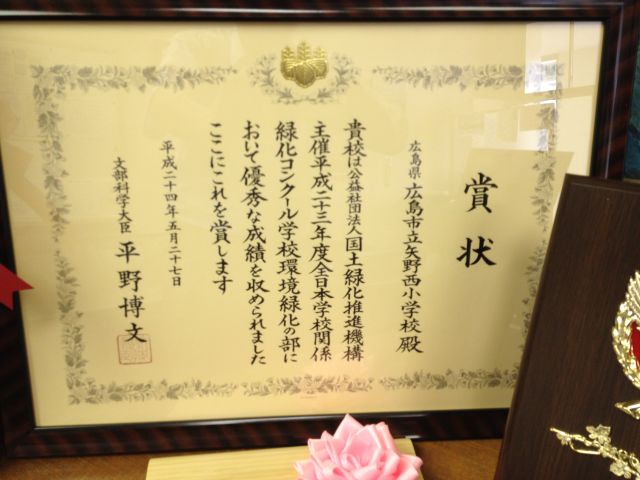 賞状
広島県 広島市立矢野西小学校 殿
貴校は公益社団法人国土緑化推進機構
主催平成二十三年度全日本学校関係
緑化コンクール学校環境緑化の部に
おいて優秀な成績を収められました
ここにこれを賞します
平成二十四年五月二十七日
文部科学大臣 平野博文